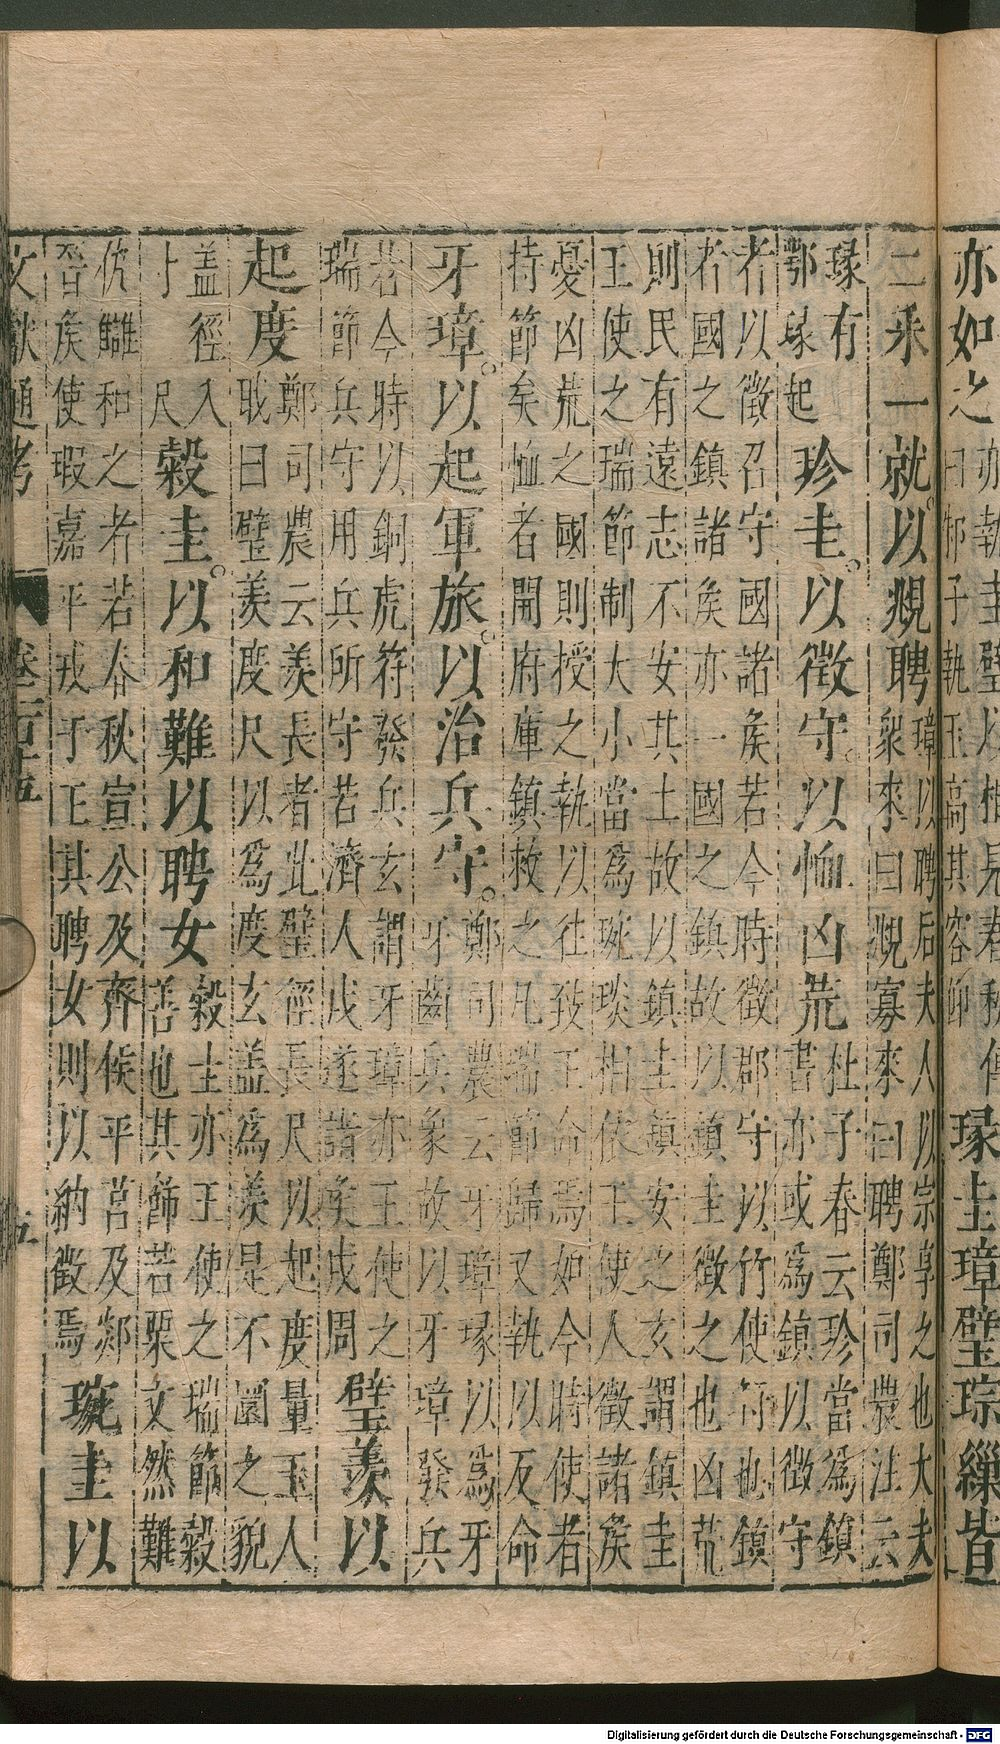 亦如之亦執圭璧以相見春秋傳
曰邾子執玉高其容仰瑑圭璋璧琮繅皆
二采一就。以覜聘璋以聘后夫人以宗享之也大夫
衆來曰覜寡來曰聘鄭司農注云
瑑有
鄂瑑起珍圭。以徵守。以恤凶荒杜子春云珍當爲鎮
書亦或爲鎮以徵守
者以徵召守國諸矦若今時徵郡守以竹使符也鎮
者國之鎮諸矦亦一國之鎮故以鎮圭徵之也凶荒
則民有遠志不安其土故以鎮圭鎮安之玄謂鎮圭
王使之瑞節制大小當爲琬琰相依王使人徵諸矦
憂凶荒之國則授之執以往致王命焉如今時使者
持節矣恤者開府庫鎮救之凡瑞節歸又執以反命
牙璋。以起軍旅。以治兵守。鄭司農云牙璋瑑以爲牙
牙齒兵象故以牙璋發兵
若今時以銅虎符發兵玄謂牙璋亦王使之
瑞節兵守用兵所守若濟人戍遂諸矦戍周璧羨以
起度鄭司農云羨長者此璧徑長尺以起度量玉人
職曰璧羨度尺以爲度玄盖爲羨是不圜之貌
盖徑入
尺穀圭。以和難以聘女穀圭亦王使之瑞節穀
善也其飾若粟文然難
仇讎和之者若春秋宣公及齊候平莒及郯
晉矦使瑕嘉平戎于王其聘女則以納徵焉琬圭以
文獻通考 卷一百十五 五
Digitalisierung gefördert durch die Deutsche Forschungsgemeinschaft - DFG